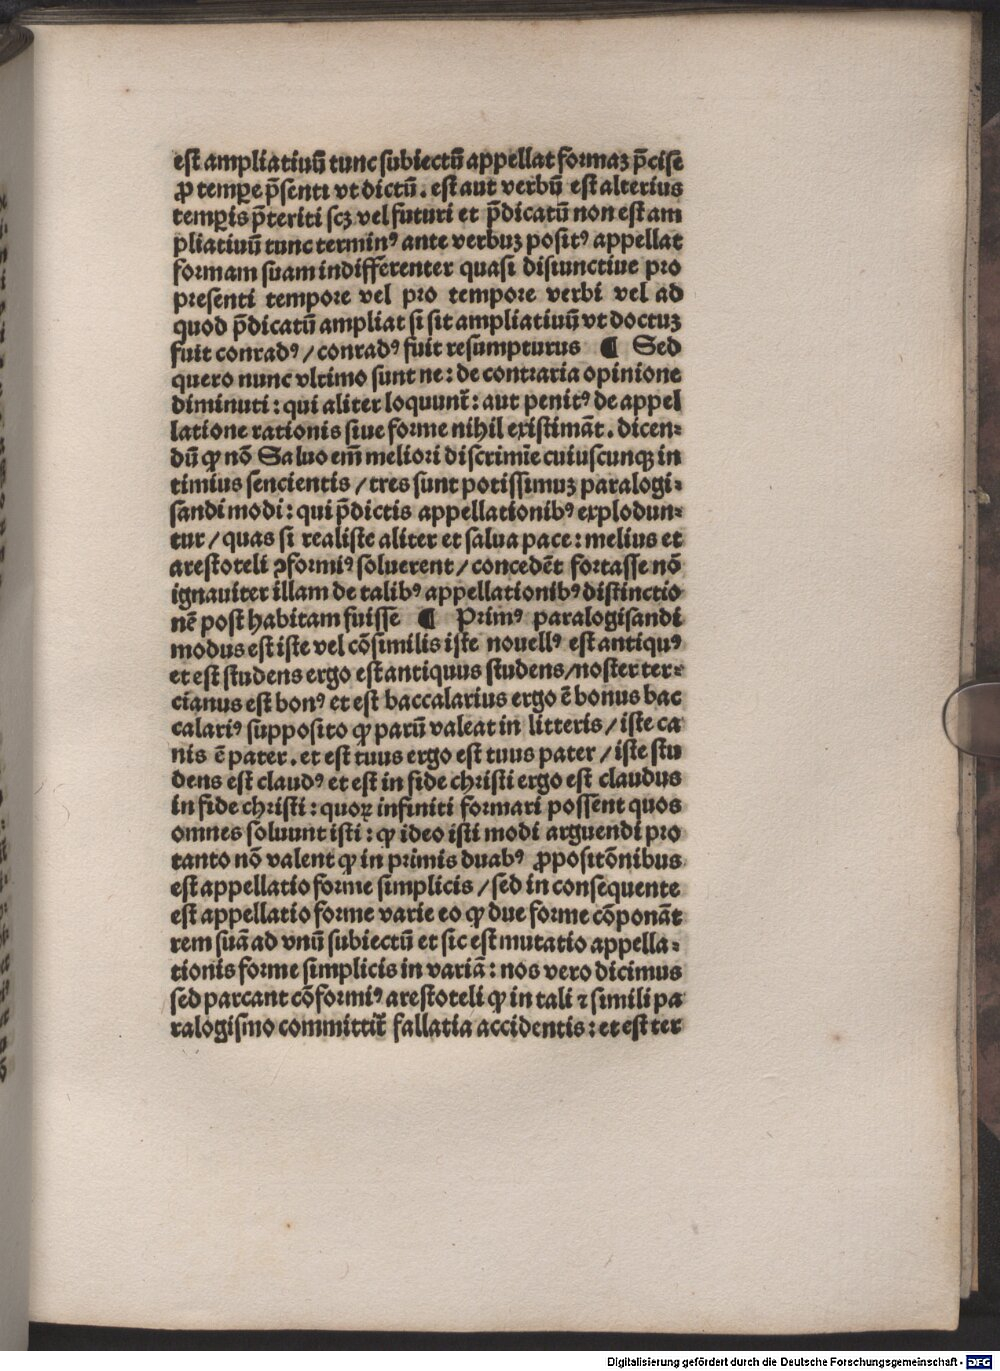 est ampliatiuū tunc subiectū appellat formaꝫ p̄cise
ꝓ temꝑe p̄senti vt dictū. est aut verbū est alterius
temꝑis p̄teriti scꝫ vel futuri et p̄dicatū non est am
pliatiuū tunc terminꝰ ante verbuꝫ positꝰ appellat
formam suam indifferenter quasi disiunctiue pro
presenti tempore vel pro tempore verbi vel ad
quod p̄dicatū ampliat si sit ampliatiuū vt doctuꝫ
fuit conradꝰ / conradꝰ fuit resumpturus ¶ Sed
quero nunc vltimo sunt ne: de contraria opinione
diminuti: qui aliter loquunt᷑: aut penitꝰ de appel
latione rationis siue forme nihil existimāt. dicen⸗
dū ꝙ nō Saluo em̄ meliori discrimīe cuiuscunqꝫ in
timius sencientis / tres sunt potissimuꝫ paralogi⸗
sandi modi: qui p̄dictis appellationibꝰ explodun⸗
tur / quas si realiste aliter et salua pace: melius et
arestoteli ꝯformiꝰ soluerent / concedēt fortasse nō
ignauiter illam de talibꝰ appellationibꝰ distinctio
nē post habitam fuisse ¶ Primꝰ paralogisandi
modus est iste vel cōsimilis iste nouellꝰ est antiquꝰ
et est studens ergo est antiquus studens/noster ter⸗
cianus est bonꝰ et est baccalarius ergo ē bonus bac
calariꝰ supposito ꝙ parū valeat in litteris / iste ca
nis ē pater. et est tuus ergo est tuus pater / iste stu
dens est claudꝰ et est in fide christi ergo est claudus
in fide christi: quoꝝ infiniti formari possent quos
omnes soluunt isti: ꝙ ideo isti modi arguendi pro
tanto nō valent ꝙ in primis duabꝰ ꝓpositōnibus
est appellatio forme simplicis / sed in consequente
est appellatio forme varie eo ꝙ due forme cōponāt
rem suā ad vnū subiectū et sic est mutatio appella⸗
tionis forme simplicis in variā: nos vero dicimus
sed parcant cōformiꝰ arestoteli ꝙ in tali ⁊ simili pa
ralogismo committit᷑ fallatia accidentis: et est ter
Digitalisierung gefördert durch die Deutsche Forschungsgemeinschaft - DFG